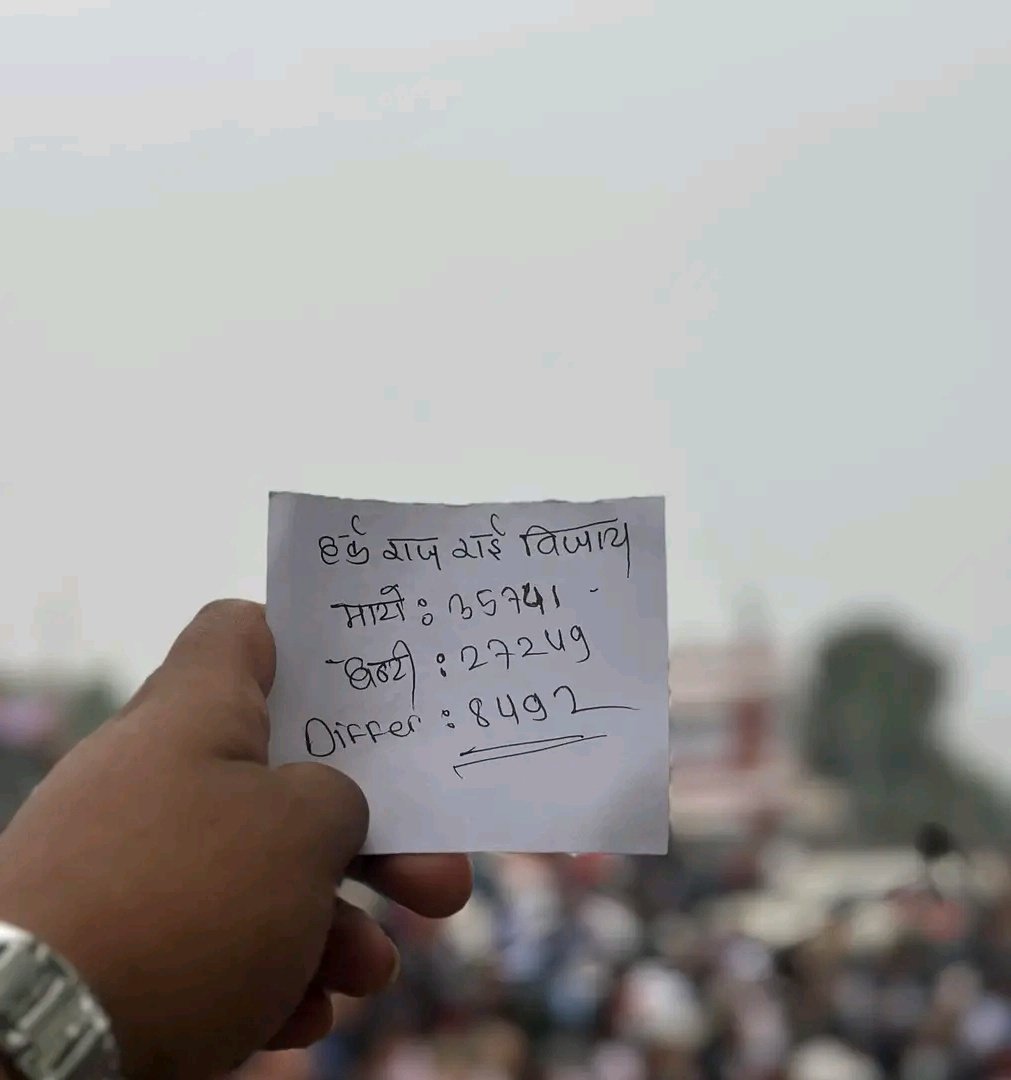 हर्क राज राई विजयी
मार्यो : 35741
घन्टी : 27249
Differ : 8492